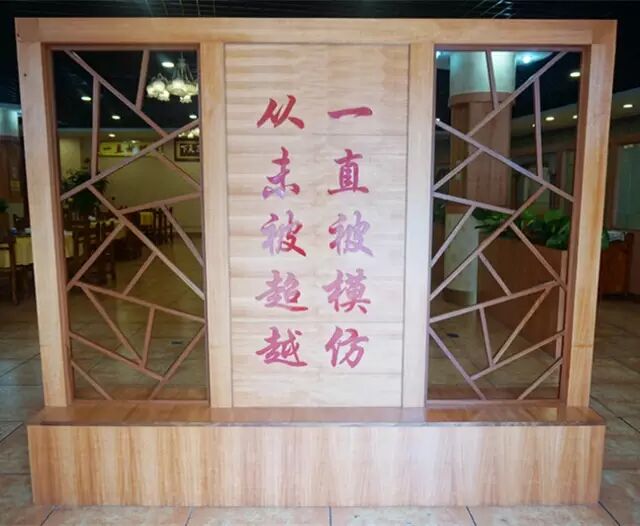 一直被模仿
从未被超越